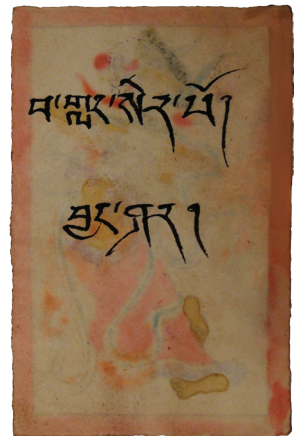 བ་གླང་སེར་པོ།
བྱང་ཤར།